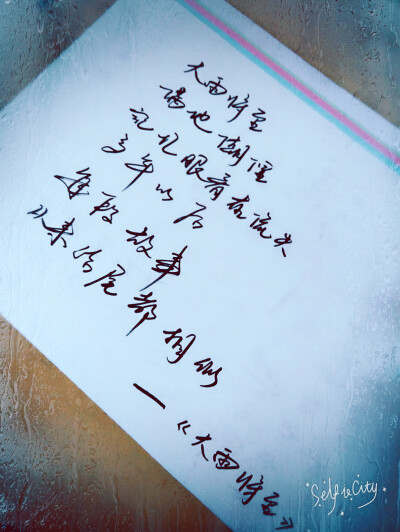 大雨将至
满地潮湿
记忆眼看在流失
多年以后
每段故事
从来结尾都相似
—《大雨将至》
Selfie City